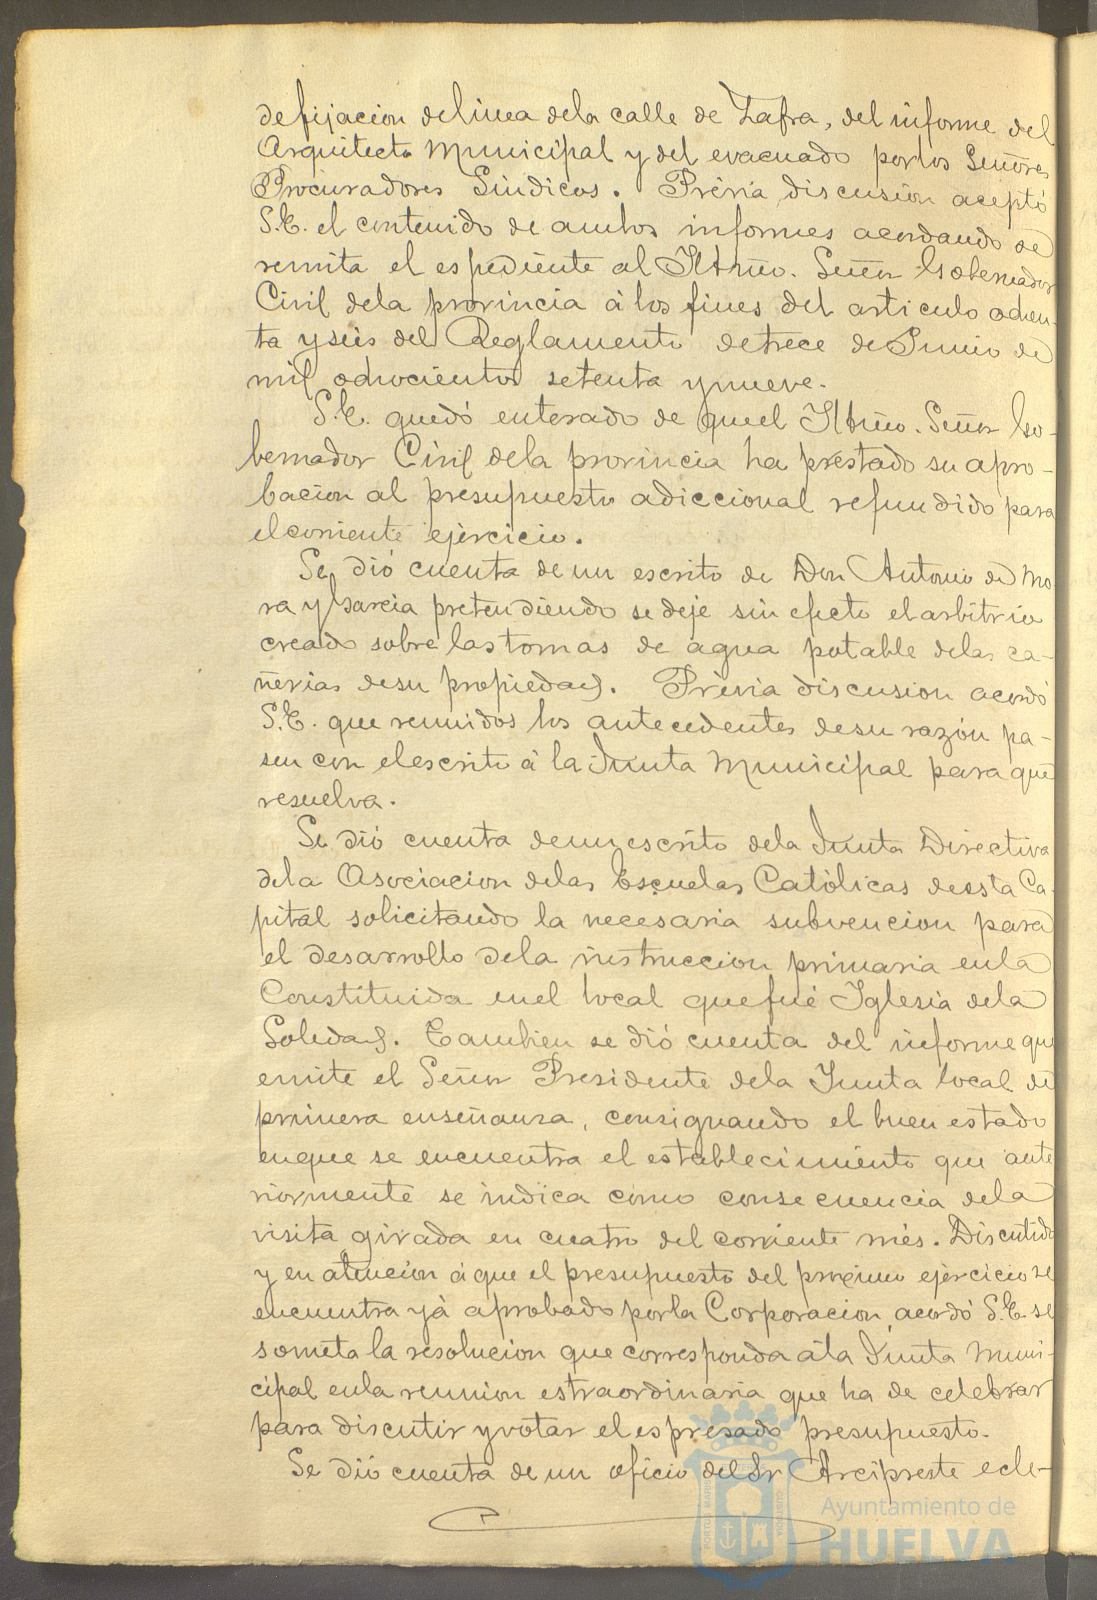 de fijacion de linea de la calle de Zafra, del informe del
Arquitecto Municipal y del evacuado por los Señores
Procuradores Sindicos. Prévia discusión aceptó
S.E. el contenido de ambos informes acordando se
remita el espediente al Iltmo. Señor Gobernador
Civil de la provincia á los fines del articulo ochen-
ta y seis del Reglamento de trece de Junio de
mil ochocientos setenta y nueve.
S.E. quedó enterado de que el Iltmo. Señor Go-
bernador Civil de la provincia ha prestado su apro-
bacion al presupuesto adiccional refundido para
el corriente ejercicio.
Se dió cuenta de un escrito de Don Antonio de Mo
ra y Garcia pretendiendo se deje sin efecto el arbitrio
creado sobre las tomas de agua potable de las ca-
ñerias de su propiedad. Prévia discusion acordó
S.E. que reunidos los antecedentes de su razón pa-
sen con el escrito á la Junta Municipal para que
resuelva.
Se dió cuenta de un escrito de la Junta Directiva
de la Asociacion de las Escuelas Católicas de esta Ca-
pital solicitando la necesaria subvencion para
el desarrollo de la instruccion primaria en la
Constituida en el local que fué Iglesia de la
Soledad. Tambien se dió cuenta del informe que
emite el Señor Presidente de la Junta local de
primera enseñanza, consignando el buen estado
en que se encuentra el establecimiento que ante
riormente se indica como consecuencia de la
visita girada en cuatro del corriente més. Discutido
y en atencion á que el presupuesto del proximo ejercicio se
encuentra yá aprobado por la Corporacion, acordó S.E. se
someta la resolucion que corresponda á la Junta Muni-
cipal en la reunion estraordinaria que ha de celebrar
para discutir y votar el espresado presupuesto.
Se dió cuenta de un oficio del Sr Arcipreste ecle-
Ayuntamiento de
HUELVA